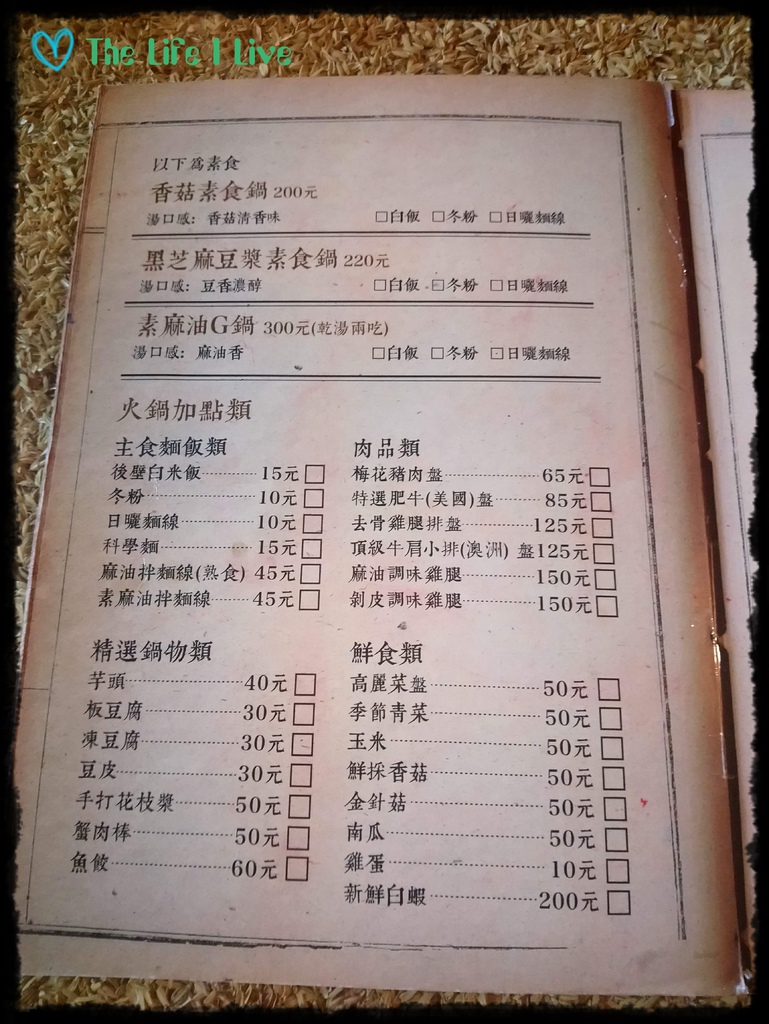 The Life I Live
以下為素食
香菇素食鍋 200元
湯口感: 香菇清香味 □白飯 □冬粉 □日曬麵線
黑芝麻豆漿素食鍋 220元
湯口感: 豆香濃醇 □白飯 □冬粉 □日曬麵線
素麻油G鍋 300元(乾湯兩吃)
湯口感: 麻油香 □白飯 □冬粉 □日曬麵線
火鍋加點類
主食麵飯類
後壁白米飯 15元 □
冬粉 10元 □
日曬麵線 10元 □
科學麵 15元 □
麻油拌麵線(熟食) 45元 □
素麻油拌麵線 45元 □
肉品類
梅花豬肉盤 65元 □
特選肥牛(美國)盤 85元 □
去骨雞腿排盤 125元 □
頂級牛肩小排(澳洲) 盤125元 □
麻油調味雞腿 150元 □
剝皮調味雞腿 150元 □
精選鍋物類
芋頭 40元 □
板豆腐 30元 □
凍豆腐 30元 □
豆皮 30元 □
手打花枝漿 50元 □
蟹肉棒 50元 □
魚餃 60元 □
鮮食類
高麗菜盤 50元 □
季節青菜 50元 □
玉米 50元 □
鮮採香菇 50元 □
金針菇 50元 □
南瓜 50元 □
雞蛋 10元 □
新鮮白蝦 200元 □